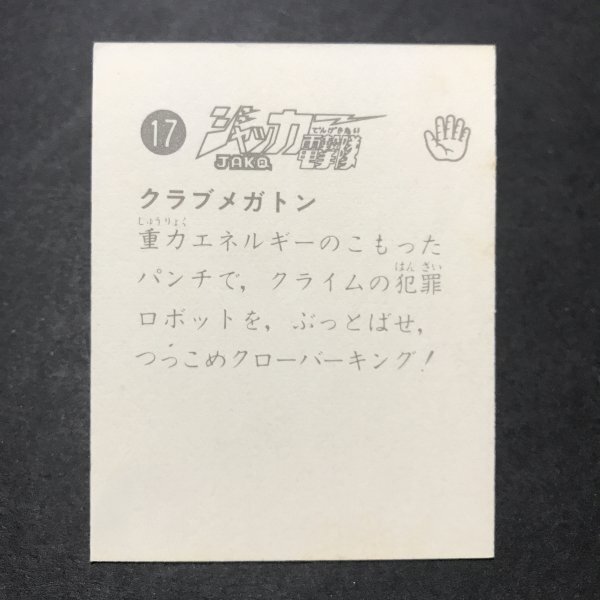 17
ジャッカー
でんげきたい
電撃隊
JAKQ
クラブメガトン
じゅうりょく
重力エネルギーのこもった
はんざい
パンチで，クライムの犯罪
ロボットを，ぶっとばせ，
つっこめクローバーキング！